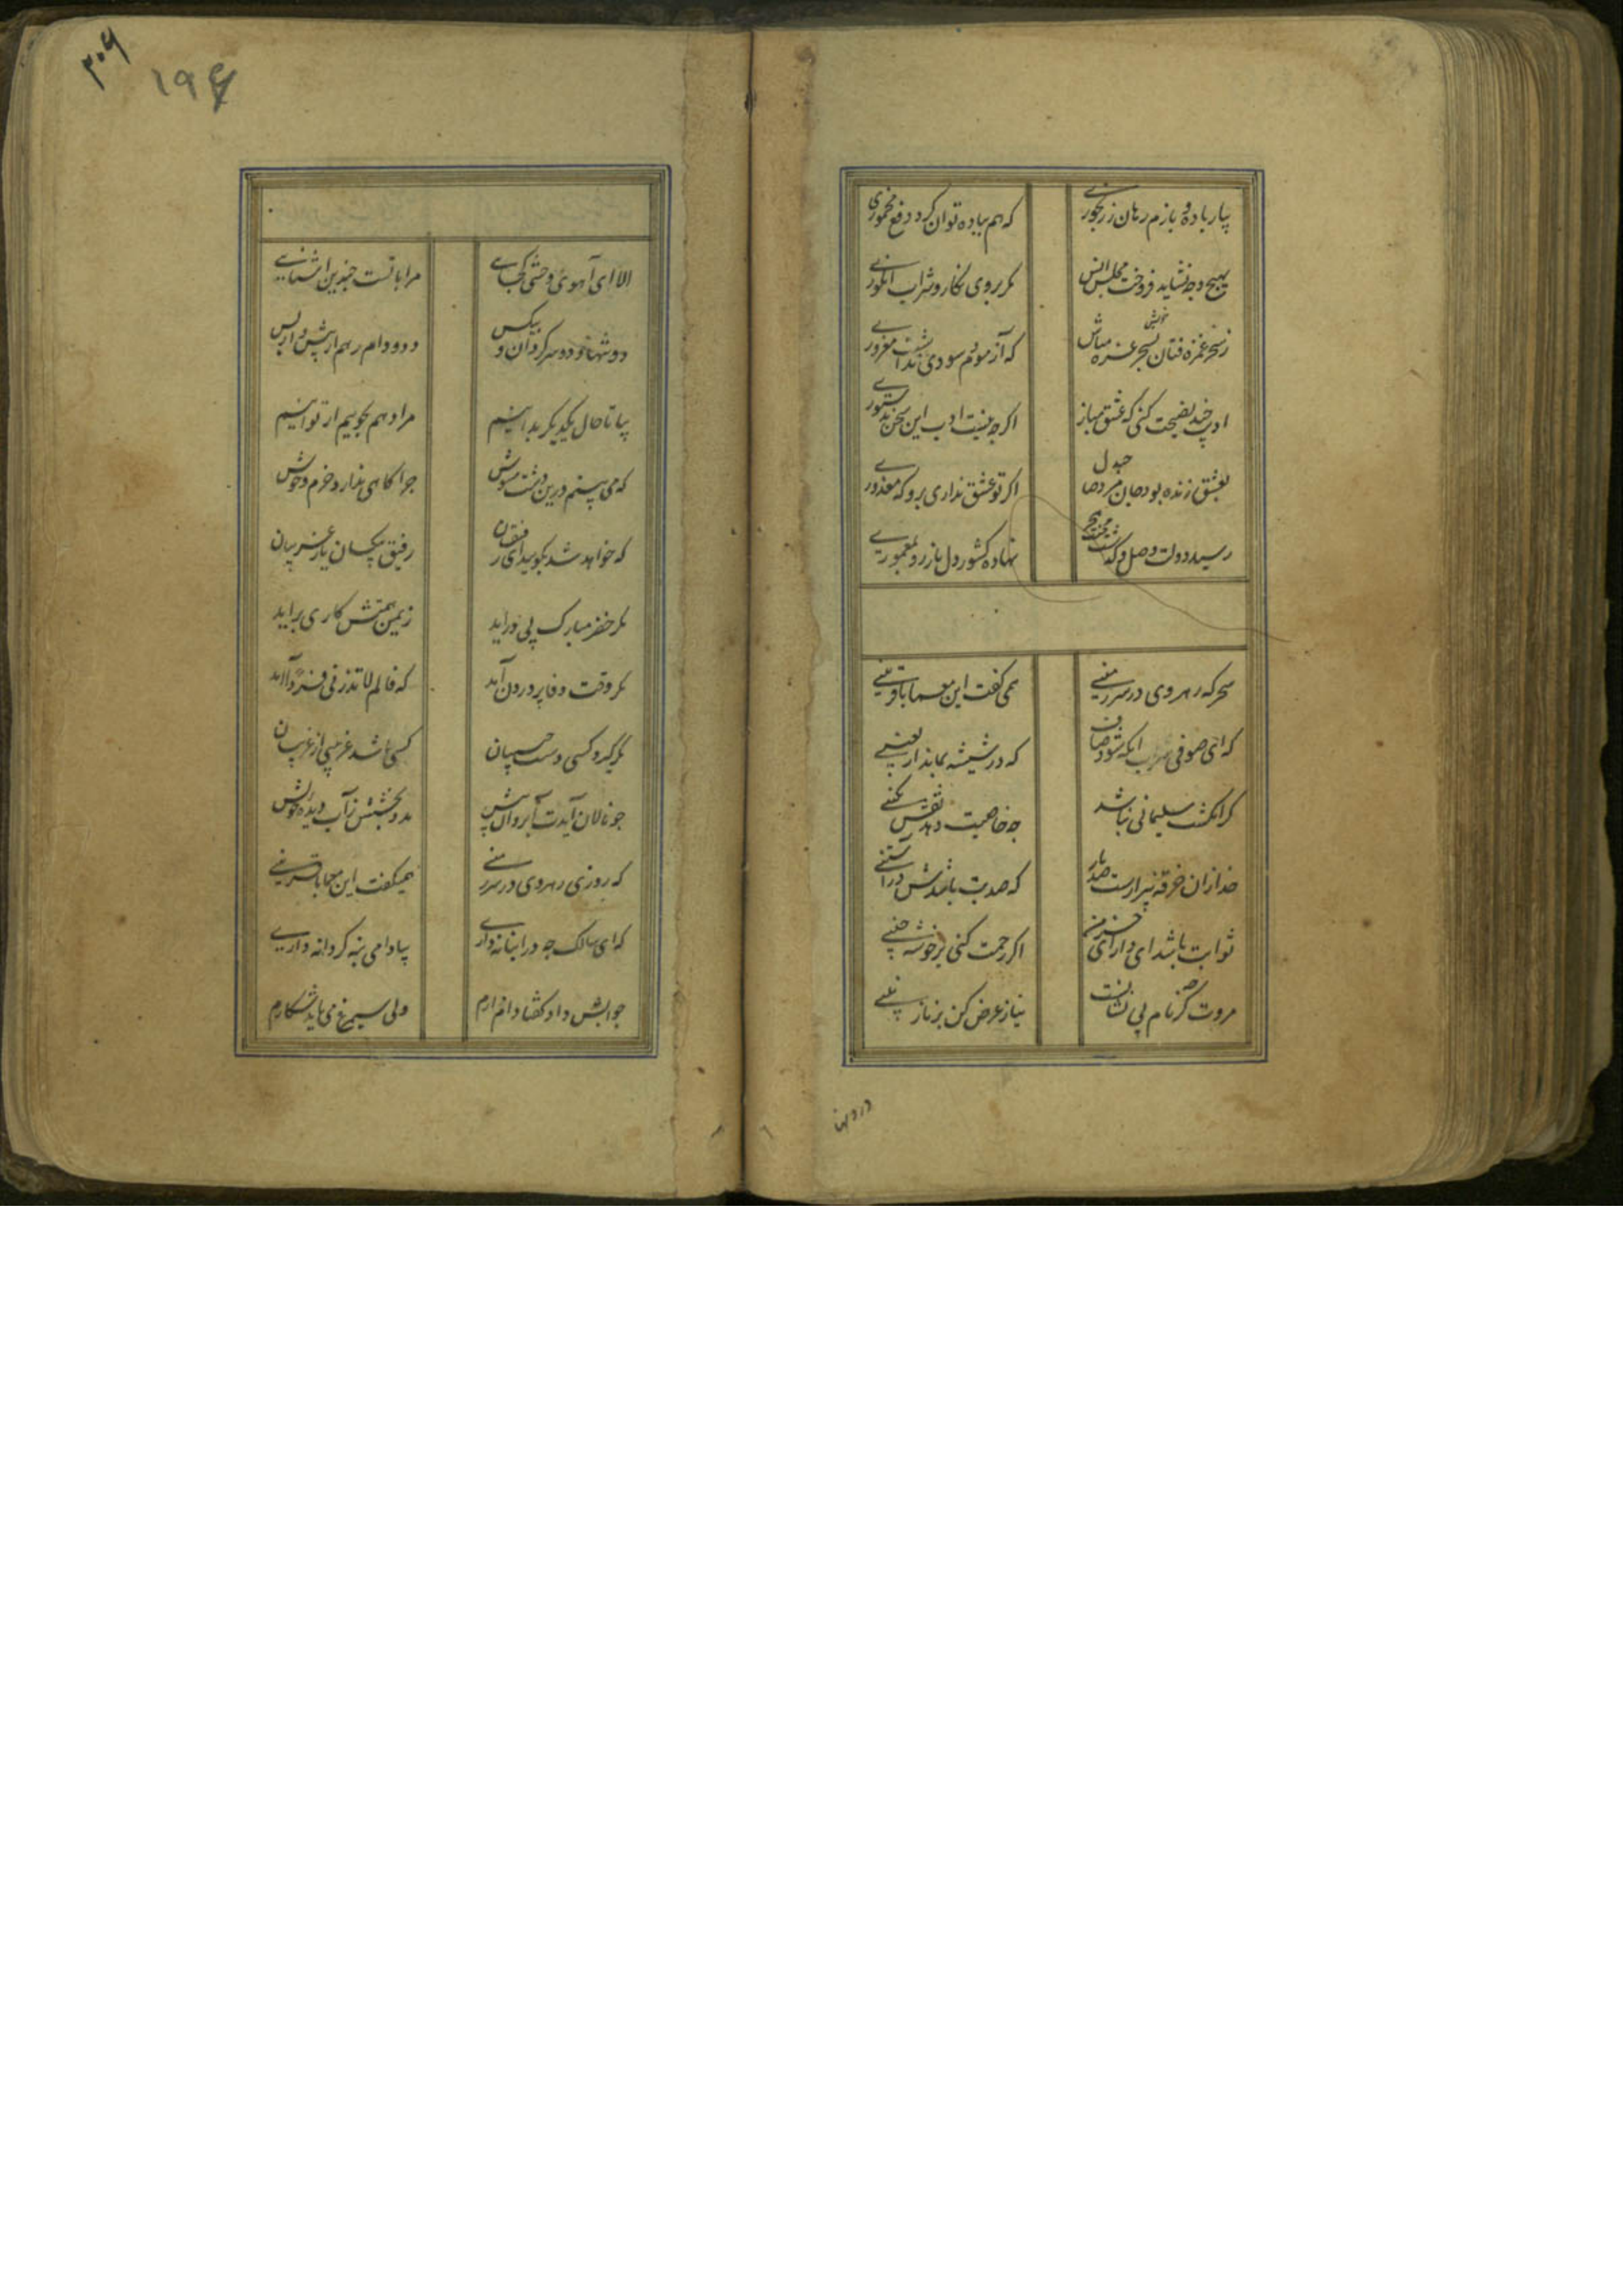 ۳۰۶
۱۹۶
بیار باده و بازم رهان ز رنجوری
که هم بباده توان کرد دفع مخموری
بهیچ وجه نشاید فروخت مجلس انس
مکر بروی نکار و شراب انکوری
ز سحر غمزه فتان خویش غره مباش
که آزمودم سودی نداشت مغروری
ادیب چند نصیحت کنی که عشق مباز
اکرچه نیست ادب این سخن بدستوری
بعشق زنده بود جان مرد صاحبدل
اکر تو عشق نداری برو که معذوری
رسید دولت وصل و کذشت محنت هجر
نهاده کشور دل باز رو بمعموری
سحرکه رهروی در سرزمینی
همی کفت این معما با قرینی
که ای صوفی شراب انکه شود صاف
که در شیشه بماند اربعینی
کر انکشت سلیمانی نباشد
چه خاصیت دهد نقش نکینی
خدا زان خرقه بیزارست صد بار
که صد بت باشدش در آستینی
ثوابت باشد ای دارای خرمن
اکر رحمت کنی بر خوشه چینی
مروت کرچه نام بی نشانست
نیاز عرض کن بر نازنینی
درونها
الا ای آهوی وحشی کجایی
مرا با تست چندین اشنایی
دو تنها و دو سرکردان و بیکس
دد و دامم رهم از پیش و از پس
بیا تا حال یکدیکر بدانیم
مراد هم بجوییم ار توانیم
که می بینم درین دشت مشوش
چراکاهی ندارد خرم و خوش
که خواهد شد بکویید ای رفیقان
رفیق بیکسان یار غریبان
مکر خضر مبارک پی درآید
ز یمن همتش کاری برآید
مکر وقت وفا پروردن آمد
که فالم لا تذرنی فردا آمد
چو نالان آیدت آب روان پیش
مدد بخشش ز آب دیده خویش
که روزی رهروی در سرزمینی
همیکفت این معما با قرینی
که ای سالک چه در انبانه داری
بیا دامی بنه کر دانه داری
جوابش داد کفتا دانه دارم
ولی سیمرغ می باید شکارم